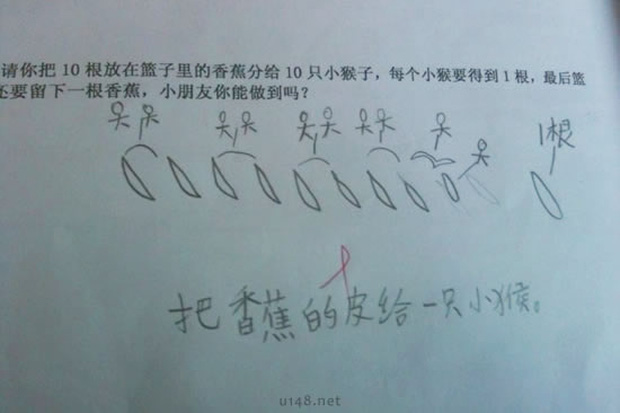 请你把10根放在篮子里的香蕉分给10只小猴子，每个小猴要得到1根，最后篮
还要留下一根香蕉，小朋友你能做到吗？
1根
把香蕉的皮给一只小猴。
u148.net